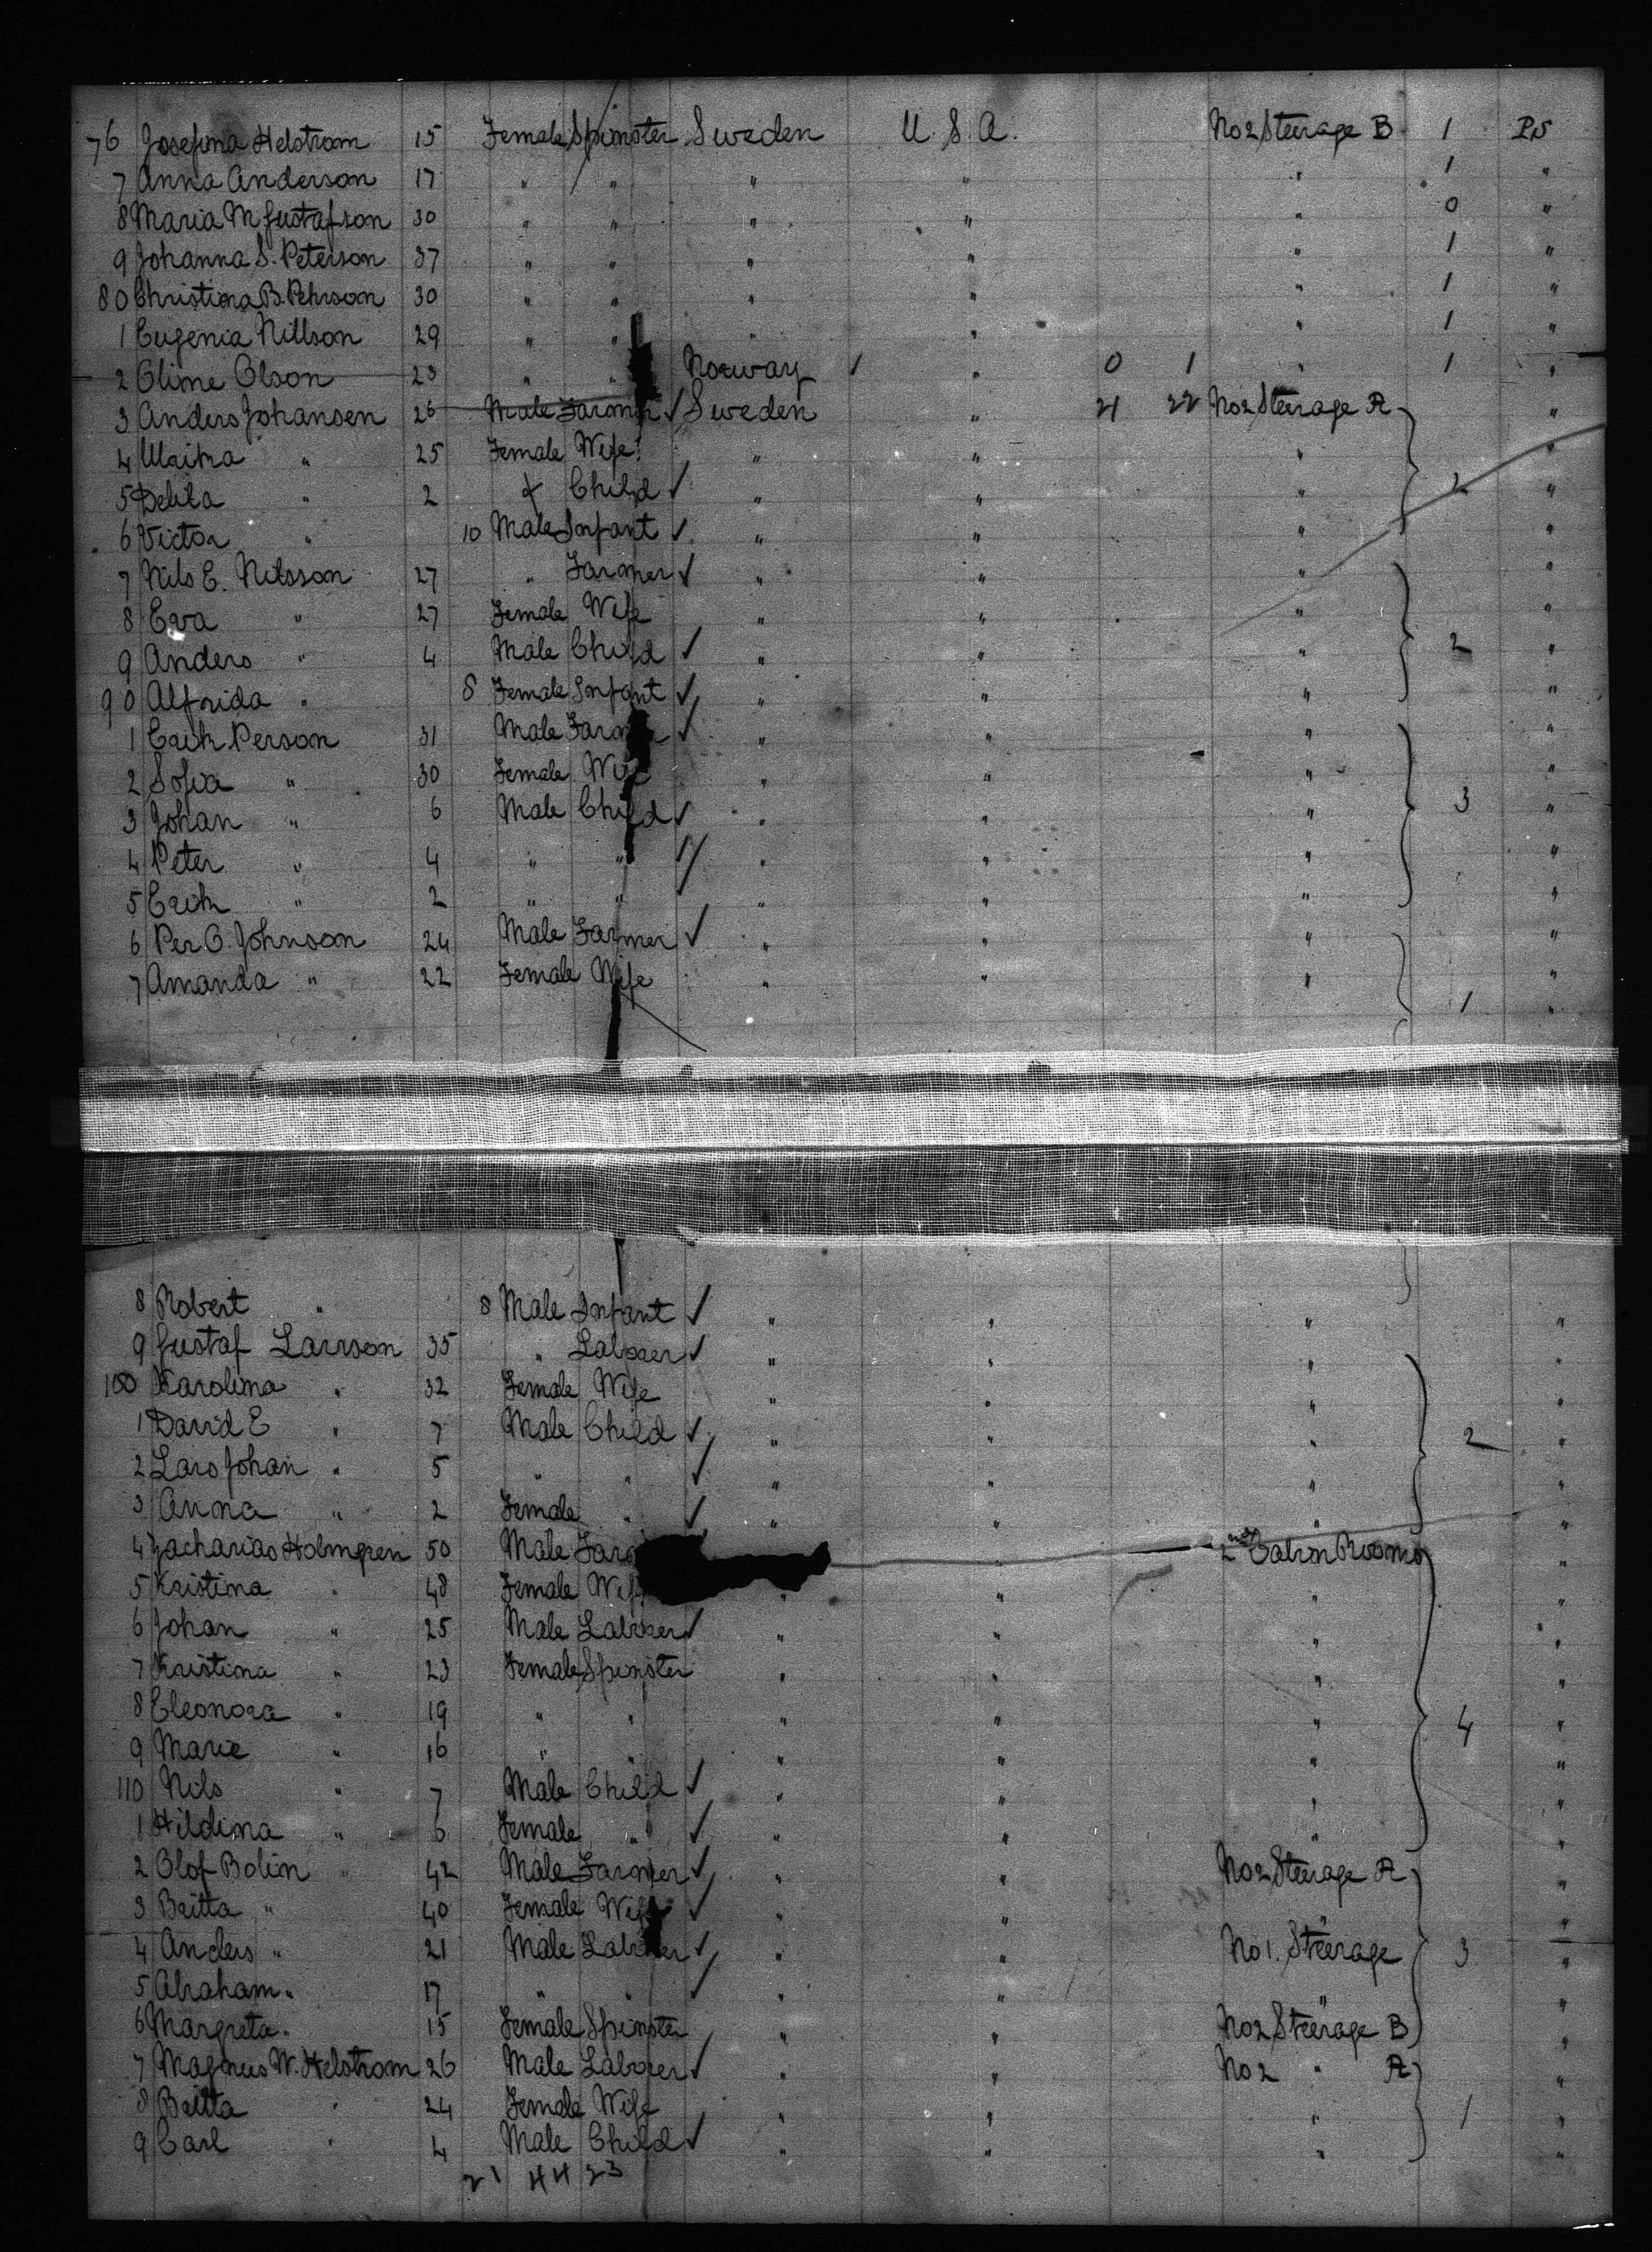 76 Josefina Helstrom 15 Female Spinster Sweden U. S. A. No 2 Steerage B 1 PS
7 Anna Anderson 17 " " " " " 1 "
8 Maria M Gustafson 30 " " " " " 0 "
9 Johanna S. Peterson 37 " " " " " 1 "
80 Christina B. Pehrson 30 " " " " " 1 "
1 Eugenia Nillson 29 " " " " " 1 "
2 Oline Olson 23 " " Norway 1 " 0 1 " 1 "
3 Anders Johansen 26 Male Farmer ✓ Sweden " 21 22 No2 Steerage A "
4 " 25 Female Wife " " " "
5 Delila " 2 Child ✓ " " " 2 "
6 Victor " 10 Male Infant ✓ " " " "
7 Nils E. Nilsson 27 " Farmer ✓ " " " "
8 Eva " 27 Female Wife " " " "
9 Anders " 4 Male Child ✓ " " " 2 "
90 Alfrida " 8 Female Infant ✓ " " " "
1 Erik Person 31 Male Farmer ✓ " " " "
2 Sofia " 30 Female Wife " " " "
3 Johan " 6 Male Child ✓ " " " 3 "
4 Peter " 4 " " ✓ " " " "
5 Erik " 2 " " ✓ " " " "
6 Per O. Johnson 24 Male Farmer ✓ " " " "
7 Amanda " 22 Female Wife " " " "
1 "
8 Robert " 8 Male Infant ✓ " " " "
9 Gustaf Larrson 35 " Laborer ✓ " " " "
100 Karolina " 32 Female Wife " " " "
1 David E " 7 Male Child ✓ " " " 2 "
2 Lars Johan " 5 " " ✓ " " " "
3 Anna " 2 Female " ✓ " " " "
4 Zacharias Holmgren 50 Male Far 2nd Cabin Rooms
5 Kristina " 48 Female Wife " " " "
6 Johan " 25 Male Laborer ✓ " " " "
7 Kristina " 23 Female Spinster " " " "
8 Eleonora " 19 " " " " " "
9 Marie " 16 " " " " " 4 "
110 Nils " 7 Male Child ✓ " " " "
1 Hildina " 6 Female " ✓ " " " "
2 Olof Bolin " 42 Male Farmer ✓ " " No2 Steerage A "
3 Britta " 40 Female Wife ✓ " " " "
4 Anders " 21 Male Laborer ✓ " " No 1. Steerage 3 "
5 Abraham " 17 " " ✓ " " " "
6 Margreta " 15 Female Spinster " " No2 Steerage B "
7 Magnus W. Helstrom 26 Male Laborer ✓ " " No 2 " A "
8 Britta " 24 Female Wife " " " 1 "
9 Carl " 4 Male Child ✓ " " " "
21 44 23